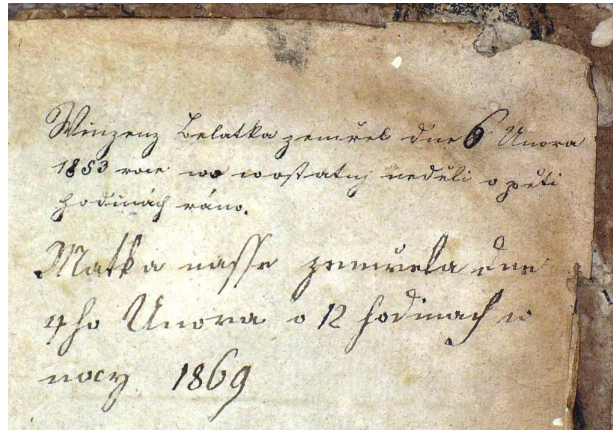 Winzenz Belatka zemřel dne 6 Unora
1853 roce wo wostatnj neděli o pěti
hodinách ráno.
Matka nasse zemřela dne
4ho Unora o 12 hodinach w
nocy 1869